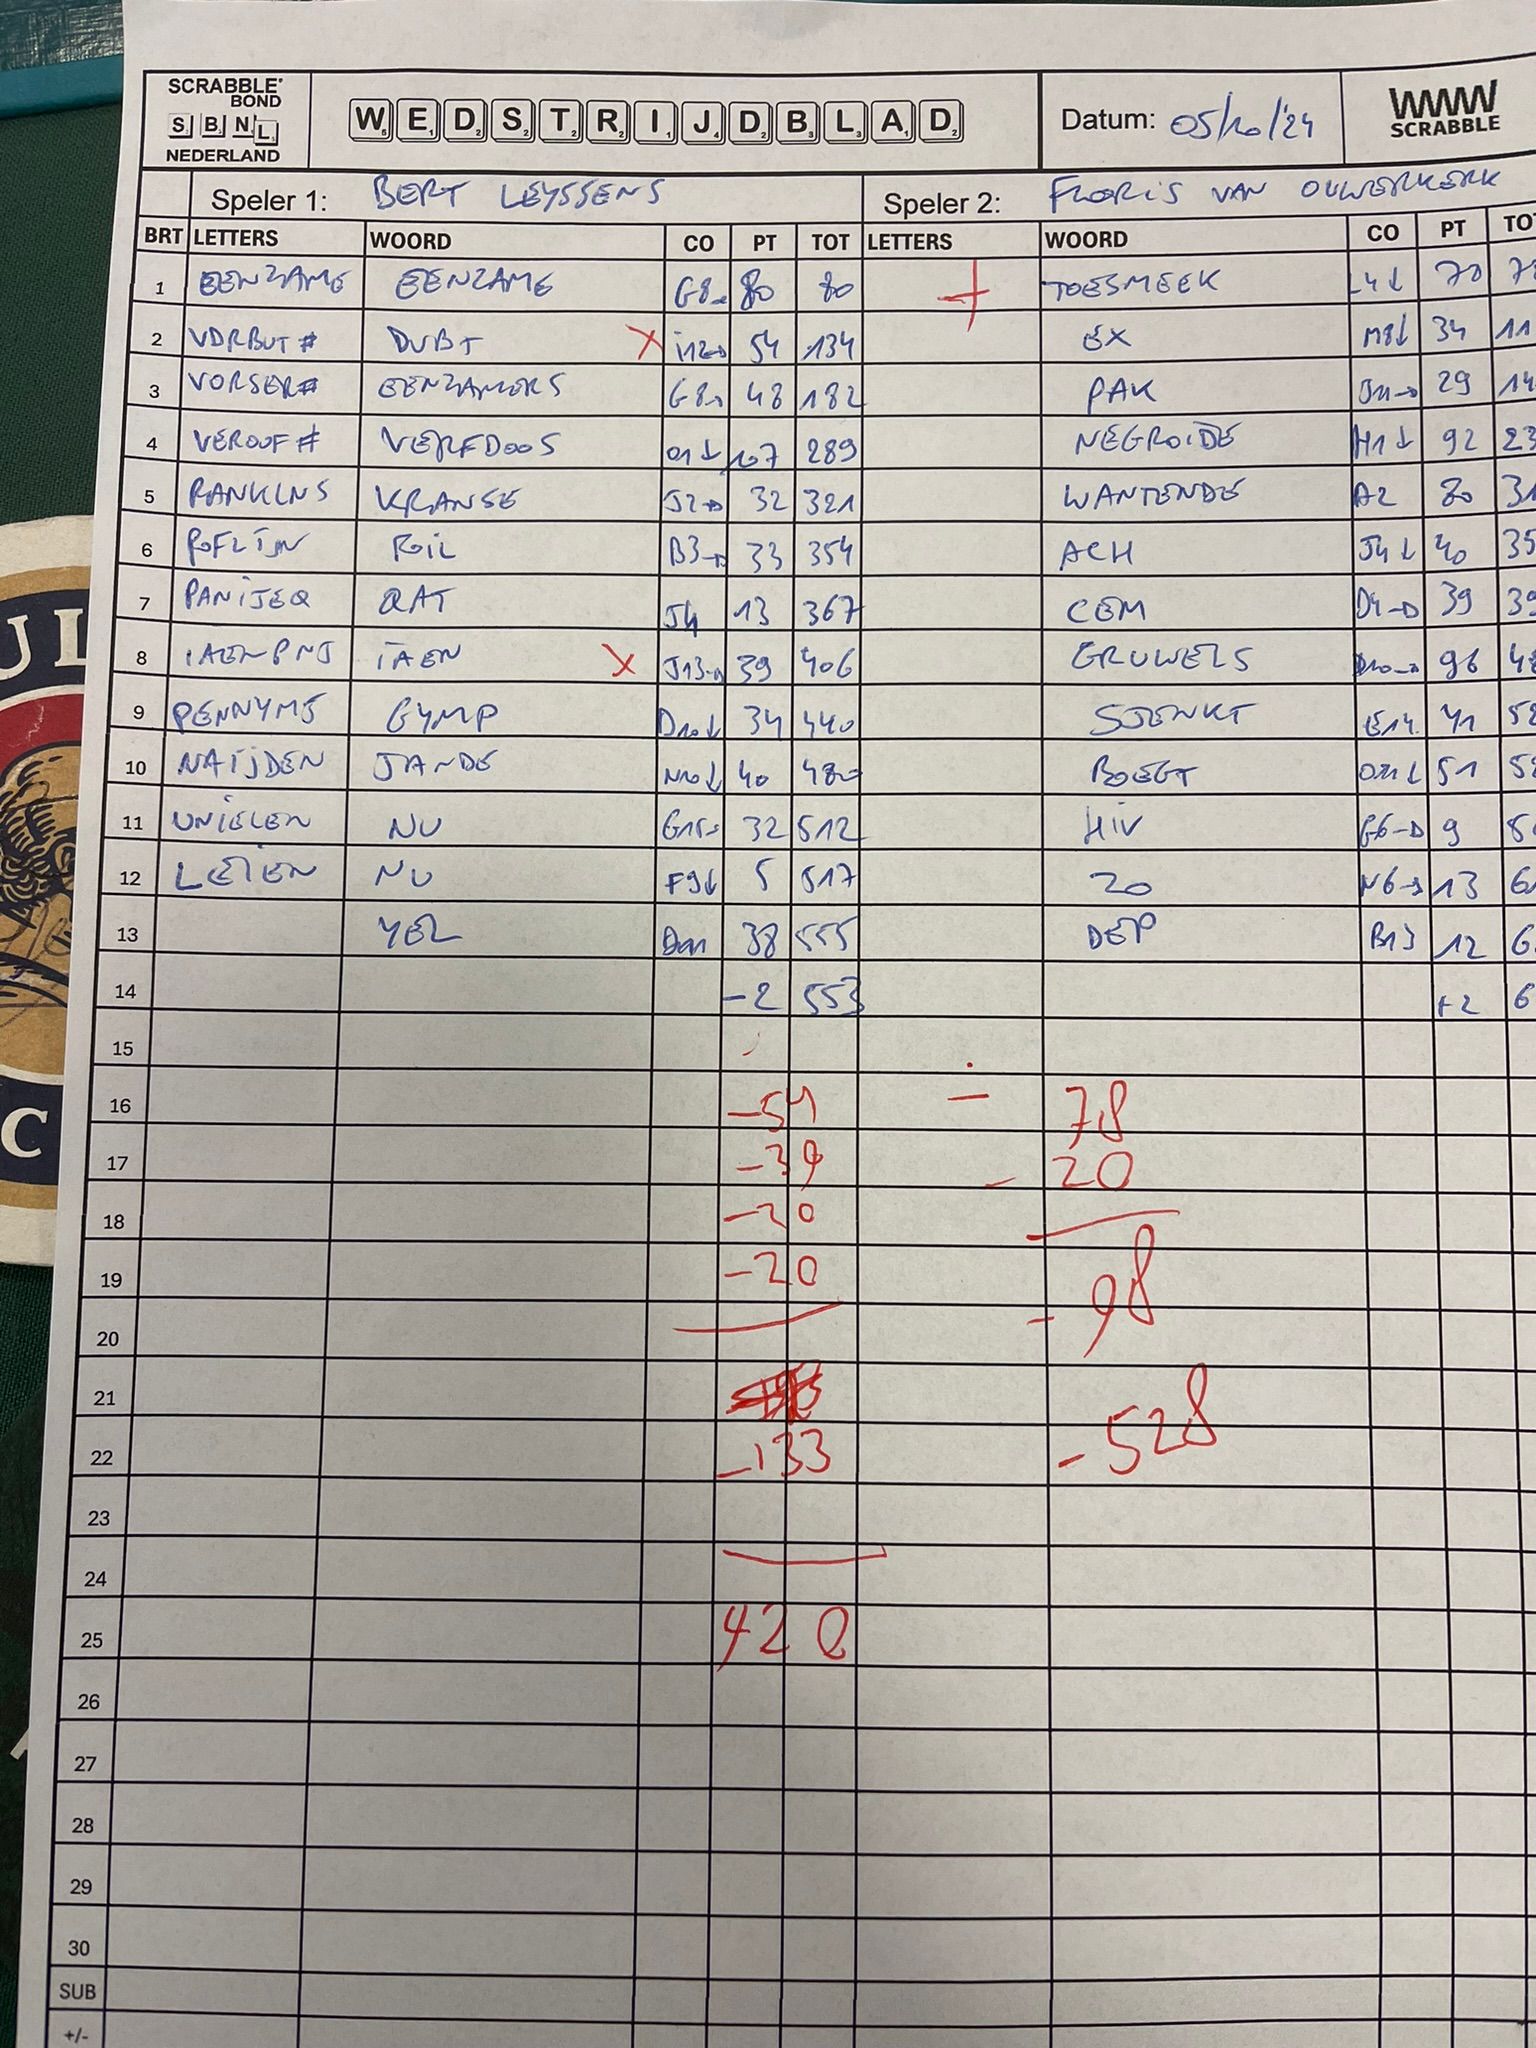 SCRABBLE BOND
SBNL
NEDERLAND
WEDSTRIJDBLAD
Datum: 05/10/'24
WWW
SCRABBLE
Speler 1: BERT LEYSSENS
Speler 2: FLORIS VAN OUWERKERK
BRT LETTERS WOORD CO PT TOT LETTERS WOORD CO PT TO
1 EENZAME EENZAME G8 80 80 + TOESMEEK L4↓ 70 7
2 VDRBUT# DUBT X i12→ 54 134 EX M8↓ 34 11
3 VORSER# EENZAMERS G8→ 48 182 PAK J11→ 29 14
4 VEROOF# VERFDOOS O1↓ 107 289 NEGROiDE H1↓ 92 23
5 RANKLNS KRANSE J2→ 32 321 WANTENDE A2 80 31
6 ROFLIJN FOiL B3→ 33 354 ACH J4↓ 40 35
7 PANIJEQ QAT J4 13 367 CEM D4→ 39 39
8 IAENPNJ iAEN X J13→ 39 406 GRUWELS D10→ 96 48
9 PENNYMJ GYMP D10↓ 34 440 SJENKT E14 41 52
10 NAIJDEN JANDE N10↓ 40 480 BOEGT O11↓ 51 58
11 UNIELEN NU G15→ 32 512 HIV G6→ 9 5
12 LEIEN NU F9↓ 5 517 ZO N6→ 13 6
13 YEL D11 38 555 DEP B13 12 6
14 -2 553 +2 6
15
16 -54 - 78
17 -39 - 20
18 -20
19 -20 - 98
20
21
22 -133 - 528
23
24
25 420
26
27
28
29
30
SUB
+/-